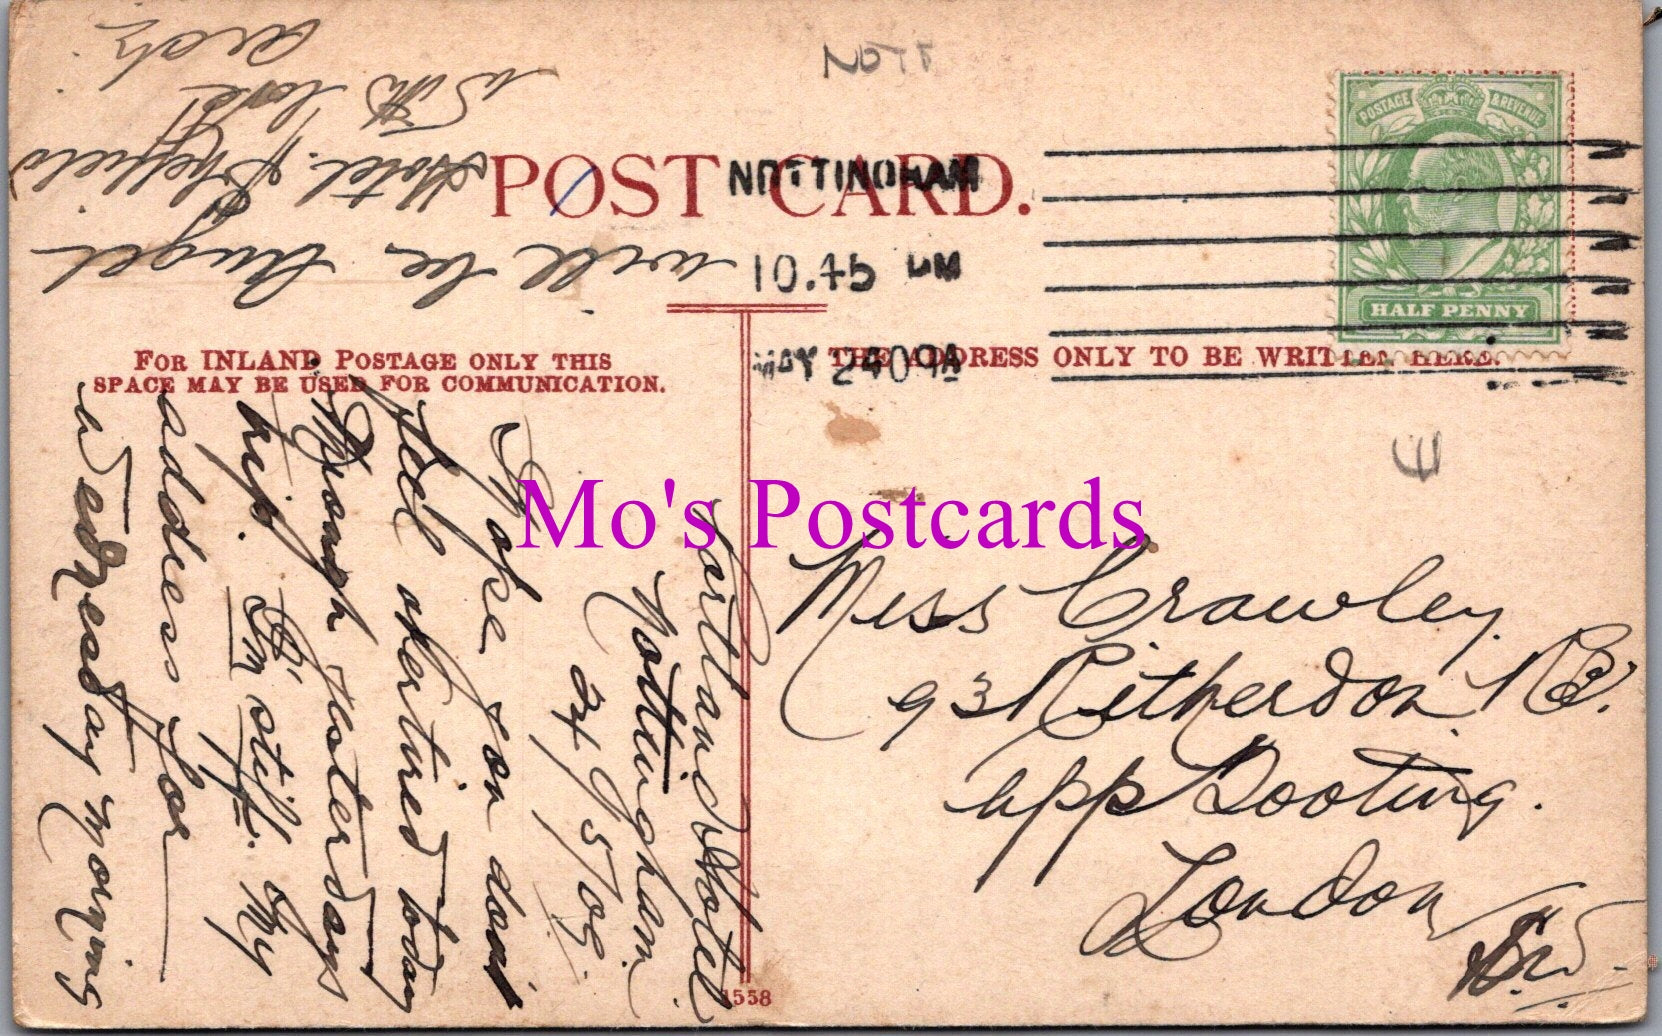 POST CARD.
NOTTINGHAM
10.45 PM
MAY 24 09 A
POSTAGE & REVENUE
HALF PENNY
FOR INLAND POSTAGE ONLY THIS
SPACE MAY BE USED FOR COMMUNICATION.
THE ADDRESS ONLY TO BE WRITTEN HERE.
Portland Hotel
Nottingham
24/5/09.
Hope you dont
feel overtired today
through yesterdays
trip. Im still. My
address for
Wednesday morning
will be
Hotel. Sheffield
With love
Miss Crawley.
93 Ritherdon Rd.
Upp Tooting.
London
S.W.
Mo's Postcards
1558
NOTT